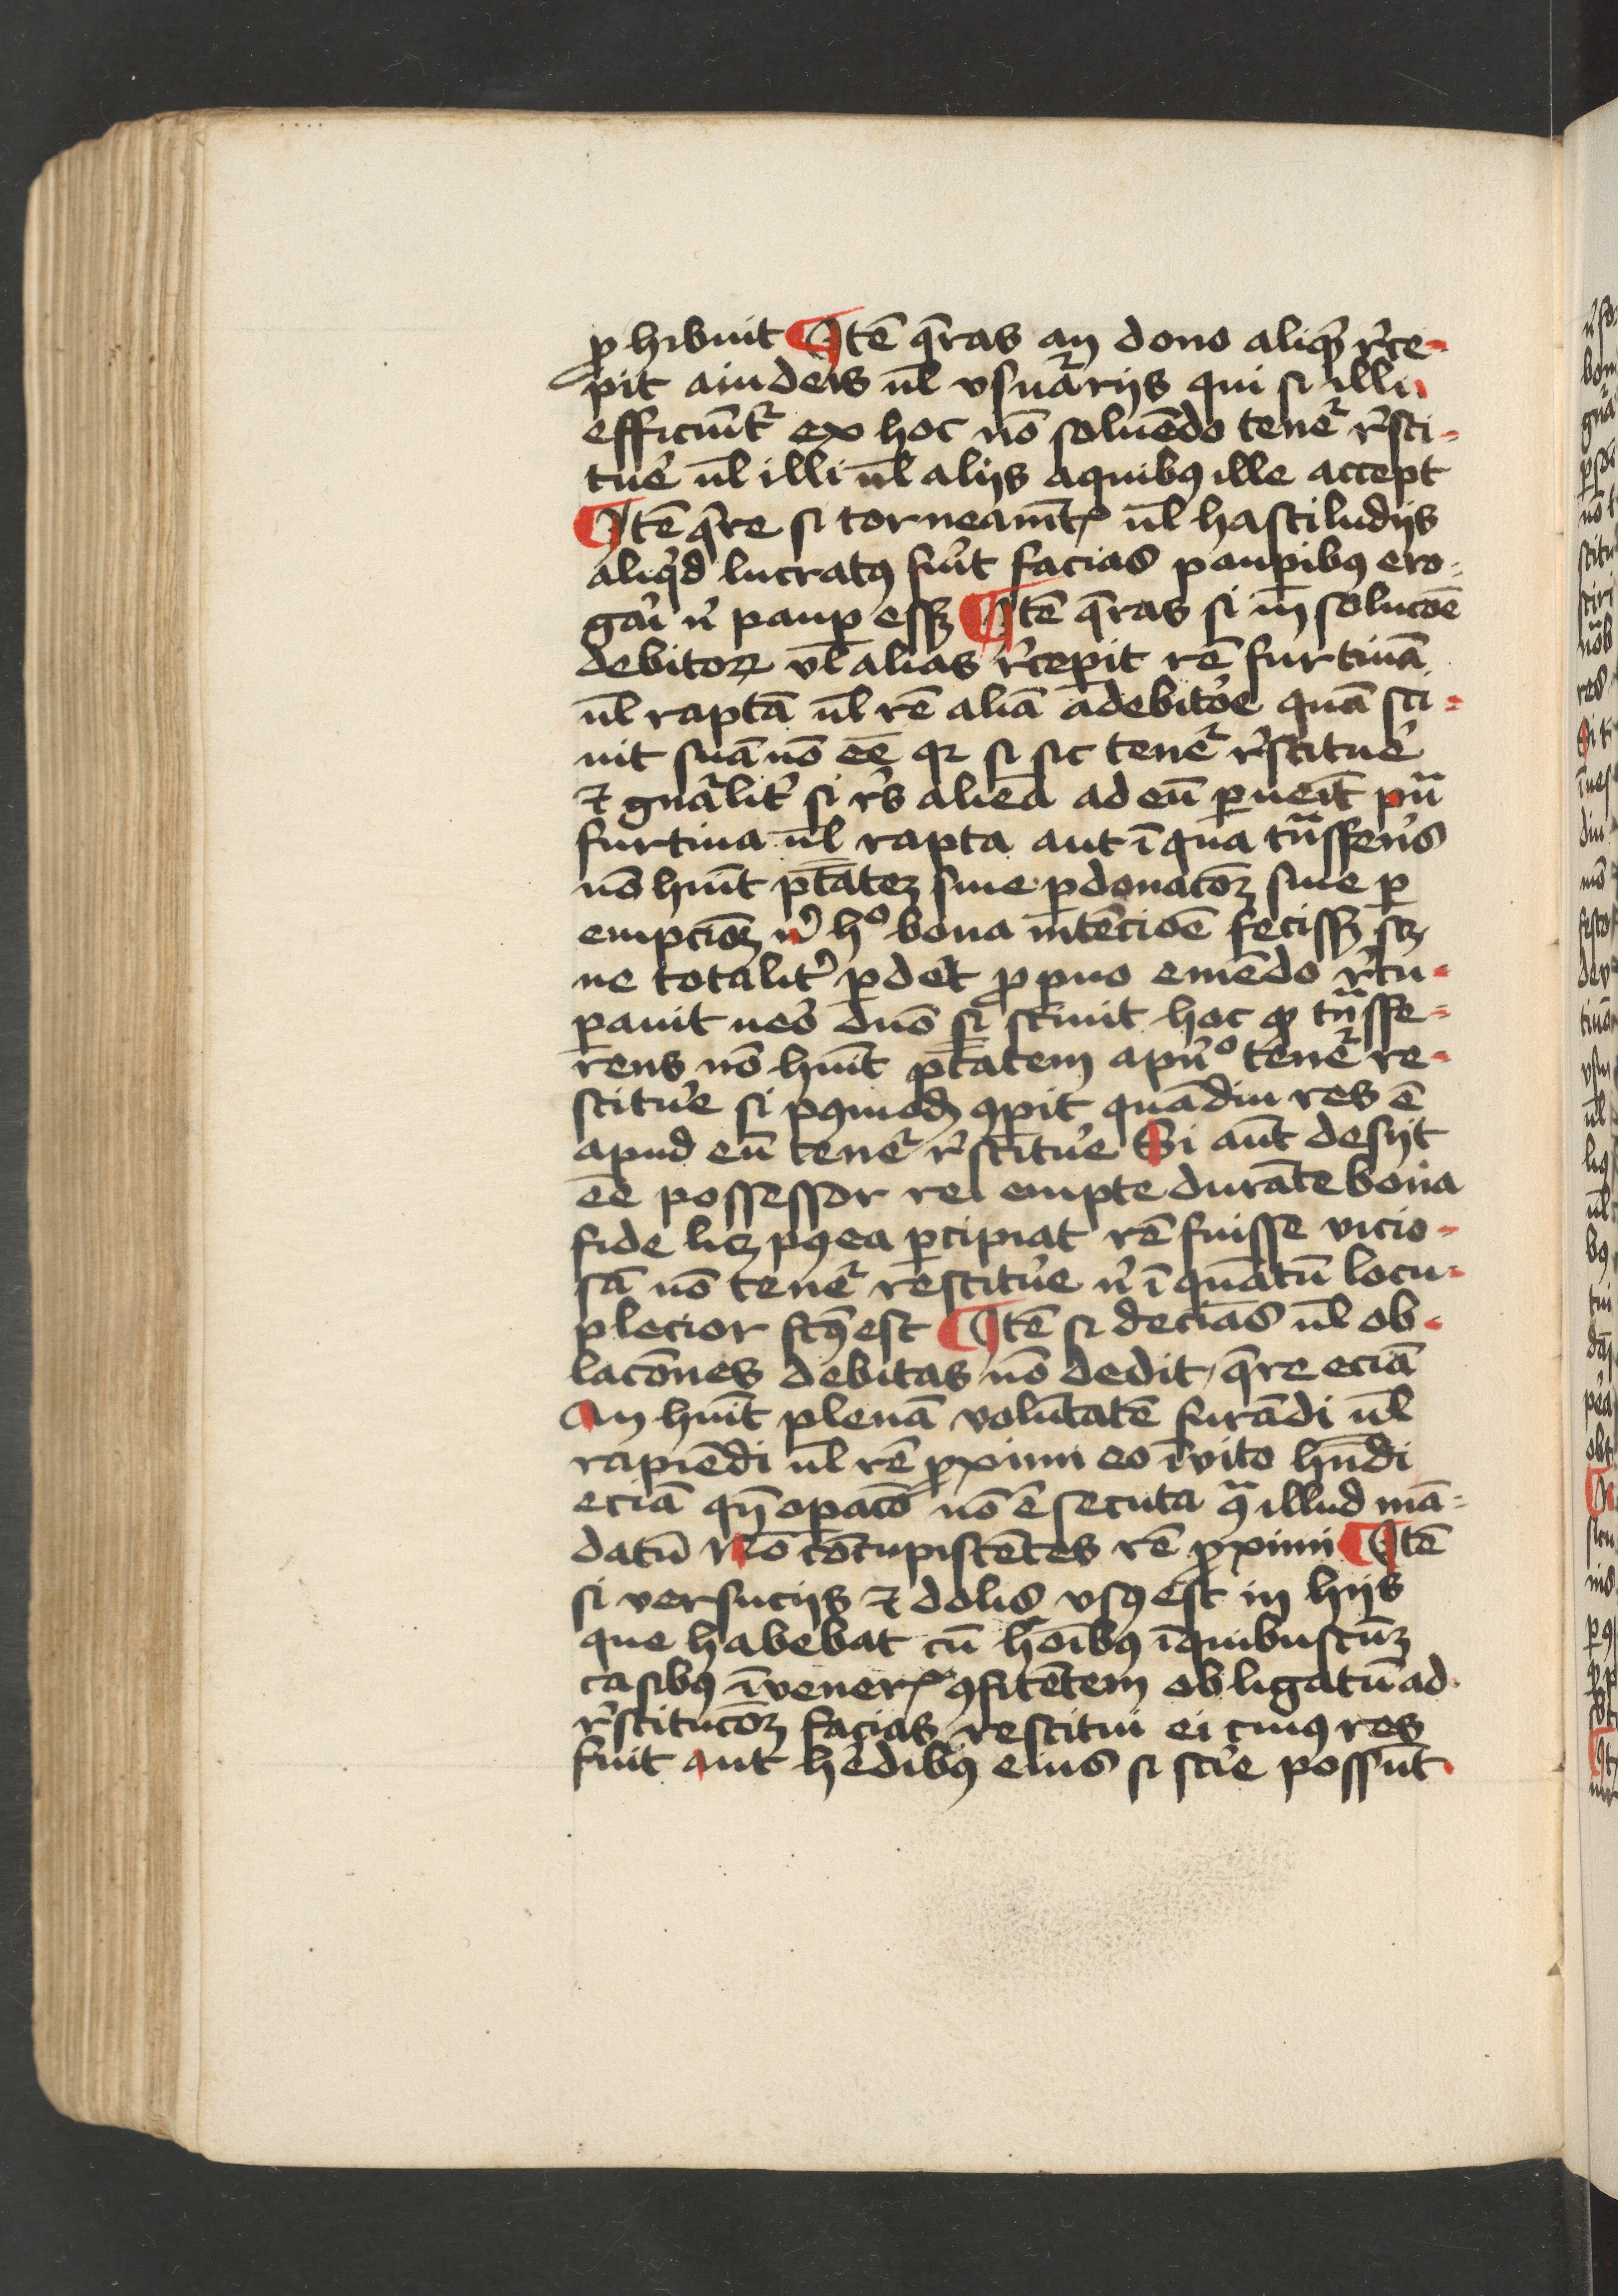 ꝓhibuit ¶ Itē q̄ras an dono aliq̄ r̄ce-
pit a iudeis ul̄ vsuarijs qui si illi
efficiūt᷑ ex hoc nō soluēdo tenet᷑ r̄sti-
tuē ul̄ illi ul̄ alijs a quibꝫ ille accept
¶ Itē q̄re si torneamēt ul̄ hastiludijs
aliq̄d lucratꝰ fūit facias paupibꝫ ero-
gāi n̄ paup essꝫ ¶ Itē q̄ras si in solucōe
debitoꝝ vl̄ alias r̄cepit rē furtiuā
ul̄ raptā ul̄ rē aliā a debitōe quā sci-
uit suā nō eē qꝛ si sic tenet᷑ r̄stituē
⁊ gn̄alit᷑ si r̄s aliēa ad eū ꝑueīt put̄a
furtiua ul̄ rapta aut ī qua tn̄sferēs
nō hūit ptāteꝫ siue ꝑ donacōꝫ siue ꝑ
empcionꝫ n̄ h° bona intēcioē fecissꝫ scꝫ
ne totalit᷑ ꝑdet ꝓ ꝑuo emēdo r̄cu-
pauit uēo dn̄o si sciuit hoc ꝙ tn̄sfe-
rens nō hūit ptātem a pn̄° tenet᷑ re-
stitūe si pꝰmodꝫ ꝯpit quādiu res ē
apud eū tenet᷑ r̄stitūe Si aūt desijt
eē possessor rei empte durāte bona
fide licꝫ pꝰea ꝑcipiat rē fuisse vicio-
sā nō tenet᷑ restitūe n̄ ī quātū locu-
plecior fcꝰ est ¶ Itē si decīas ul̄ ob-
lacōnes debitas nō dedit, q̄re eciā
An hūit plenā volūtatē furādi ul̄
rapiēdi ul̄ rē ꝓximi eo īvito hn̄di
eciā qn̄ opacō nō ē secuta qꝛ illud mā-
datū Nō cōcupiscētes rē ꝓximi ¶ Itē
si versucijs ⁊ dolis vsꝰ est in hijs
que habebat cū hoībꝫ ī quibuscūꝫ
casibꝫ īvener̄ ꝯfitētem obligatū ad
r̄stitucōꝫ facias restitui ei cuiꝰ res
fuit aut hēdibꝫ eius si scīe possūt